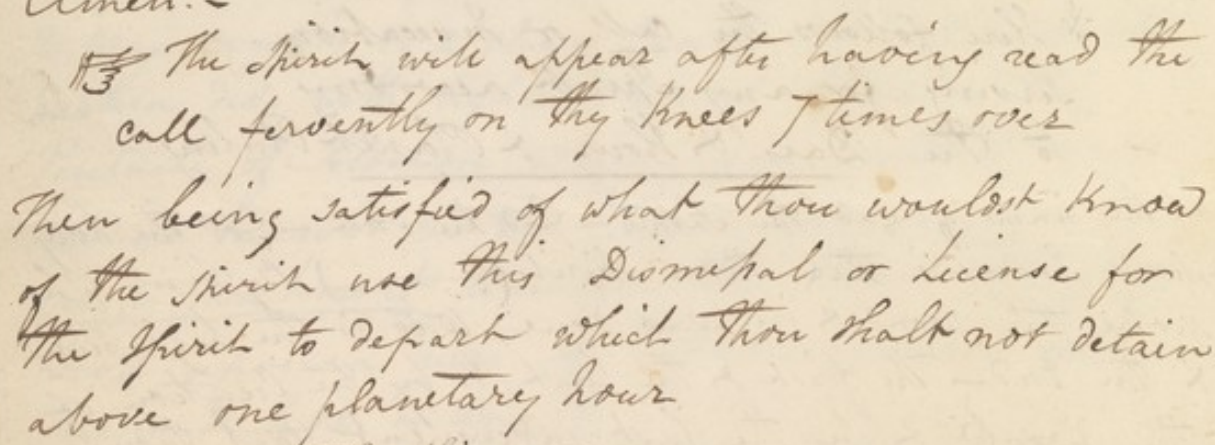 Amen.
☞ The Spirit will appear after having read the
call fervently on thy Knees 7 times over
Then being satisfied of what thou wouldst Know
of the Spirit use this Dismifsal or License for
the Spirit to depart which thou shalt not detain
above one planetary hour